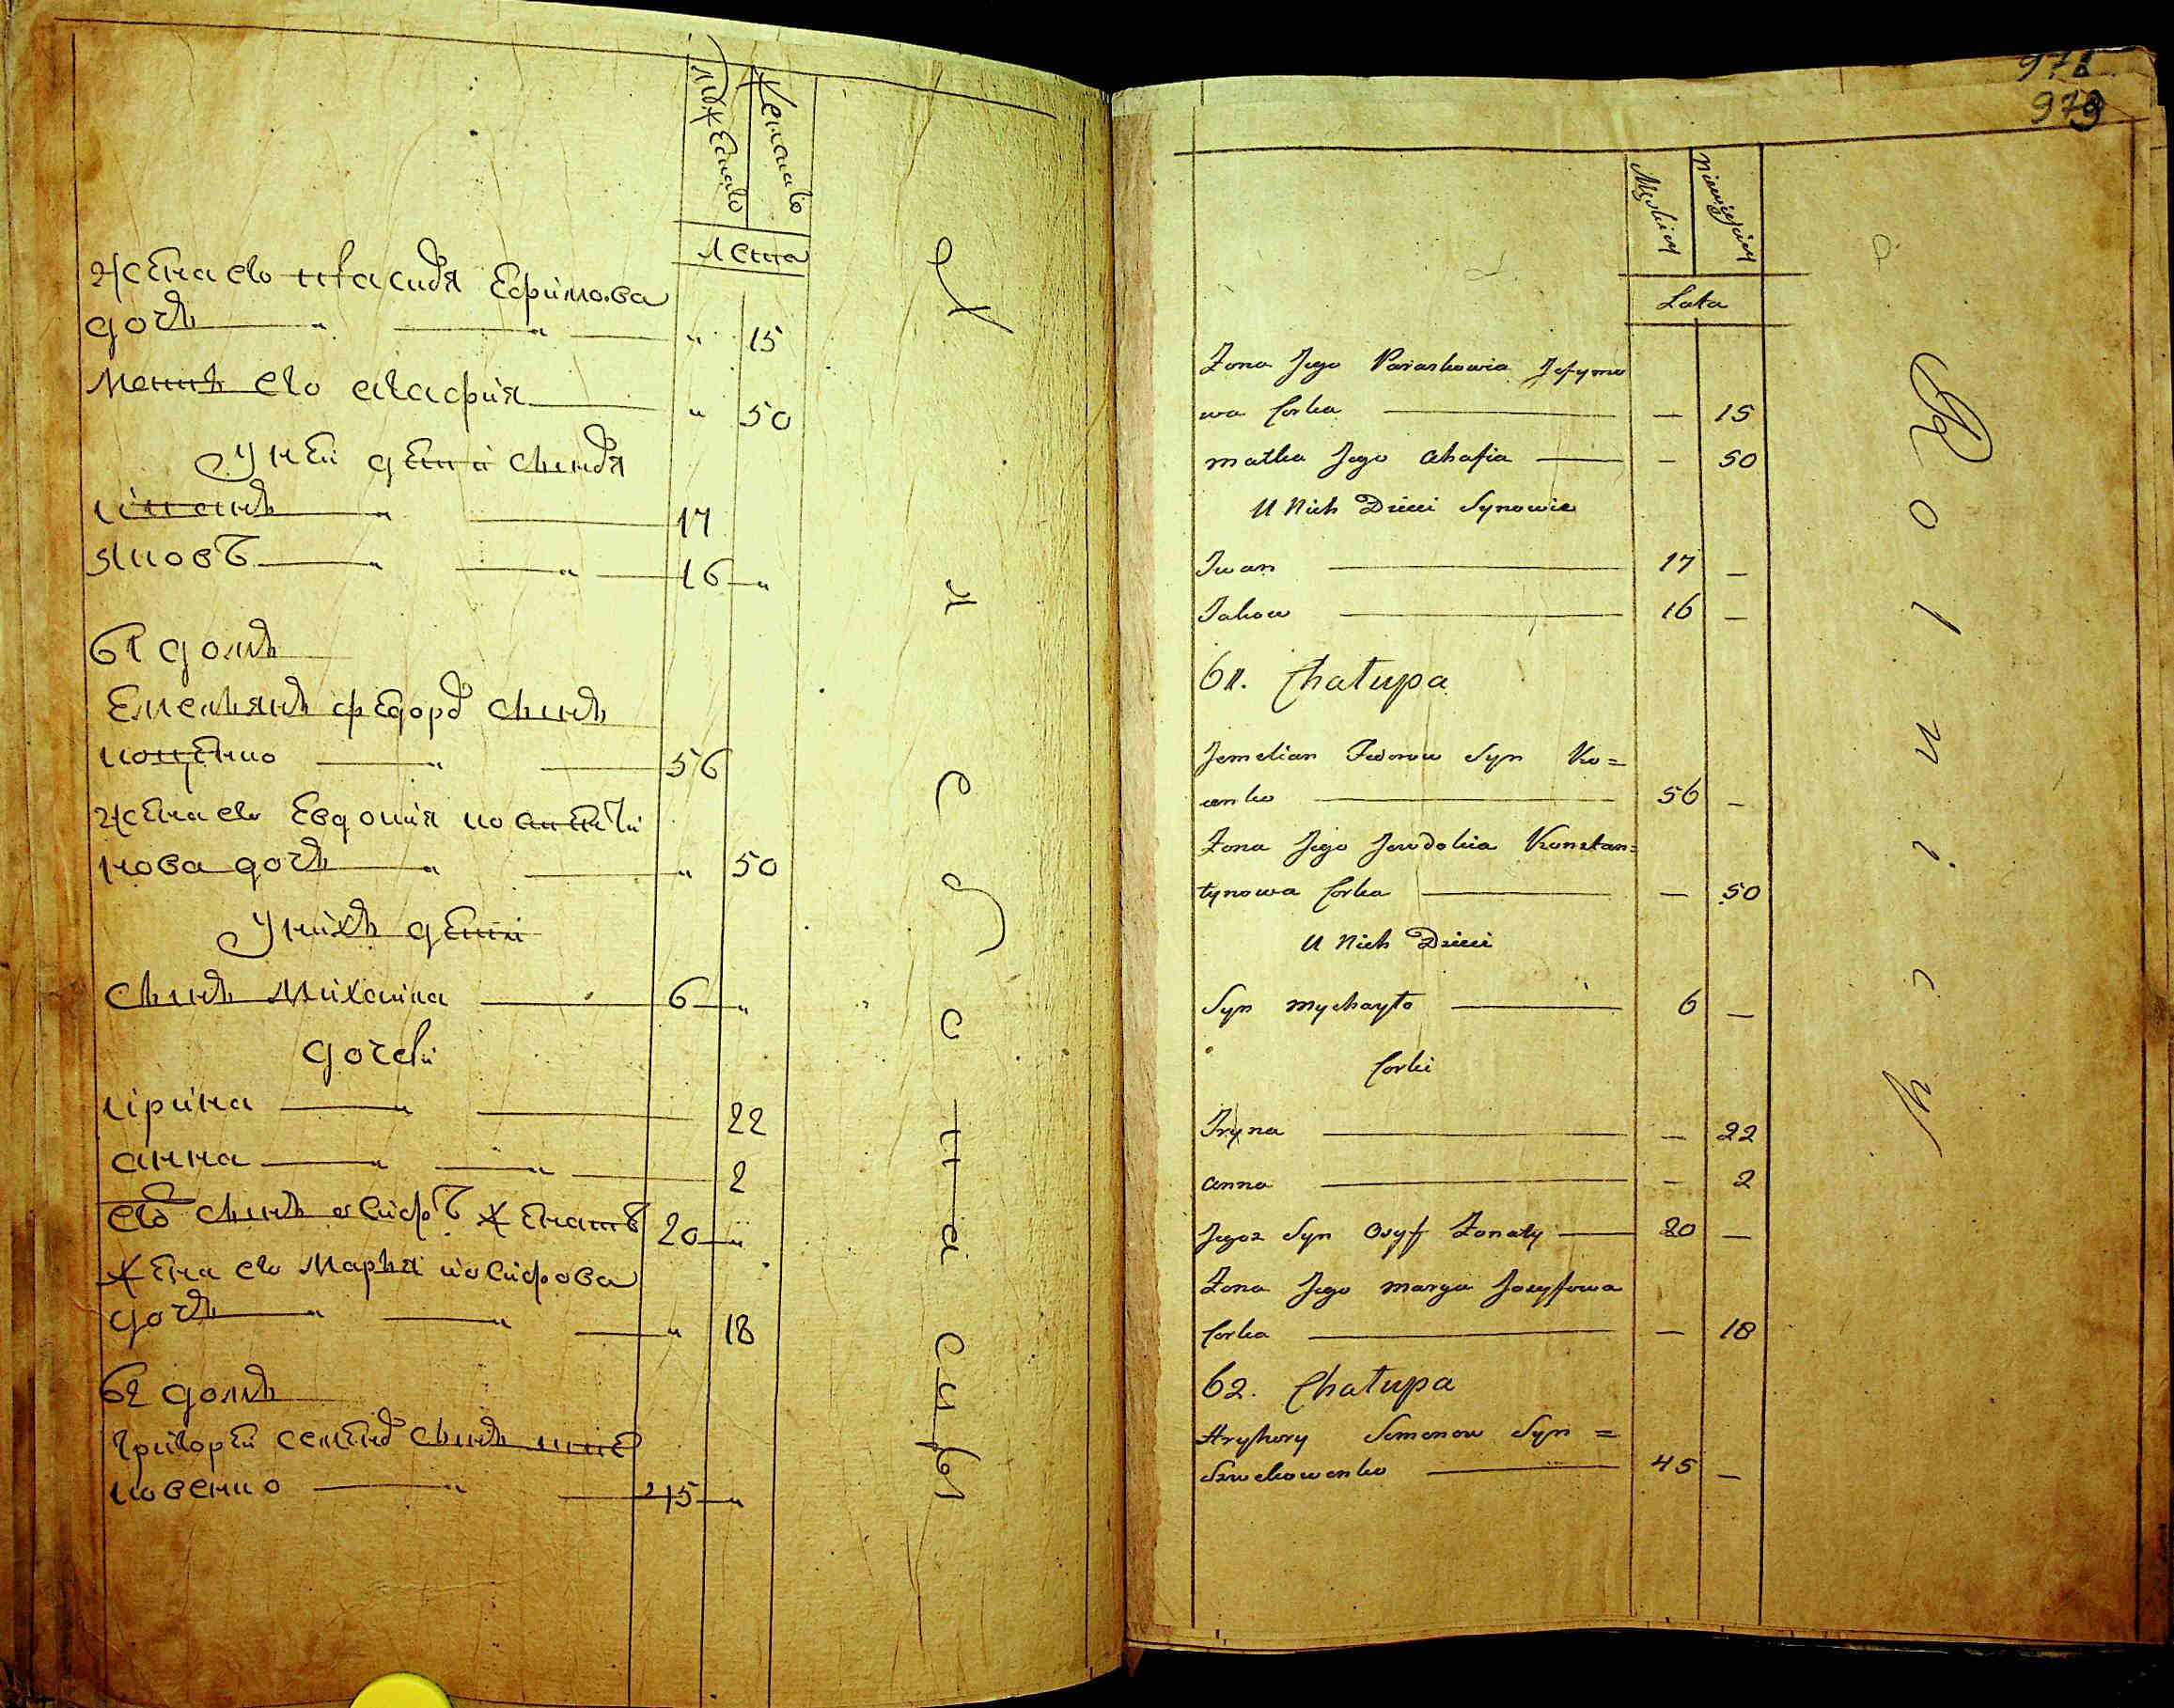 Мужеска
Женска
Лета
Жена его Параскидя Ефимова
дочь " " " 15
Мать его Агафия " 50
У ней дети сыновя
Иванъ " 17
Яковъ " " 16 "
61 домъ
Емельянъ Федоров сынъ
56
Жена его Евдокия Костянти
нова дочь " " 50
У нихъ дети
сынъ Михаила 6 "
дочери
Ирина " 22
Анна " " 2
его сынъ Осифъ женатъ 20 "
Жена его Марья Иосифова
дочь " " " 18
62 домъ
Григорей Семенов сынъ
ковенко " 45 "
978
979
Męskiey
Niewieściey
Lata
Żona Jego Paraskowia Jefymo
wa Corka — — 15
matka Jego Ahafia — — 50
U Nich Dzieci Synowie
Iwan — 17 —
Jakow — 16 —
61. Chałupa
Jemelian Fedorow Syn Ko=
anko — 56 —
Żona Jego Jewdokia Konstan=
tynowa Corka — — 50
U Nich Dzieci
Syn Mychayło — 6 —
Corki
Iryna — — 22
Anna — — 2
Jegoż Syn Osyf Żonaty — 20 —
Żona Jego Marya Jozyfowa
Corka — — 18
62. Chałupa
Hryhory Semenow Syn =
Szwekowenko — 45 —
R
o
l
n
i
c
y